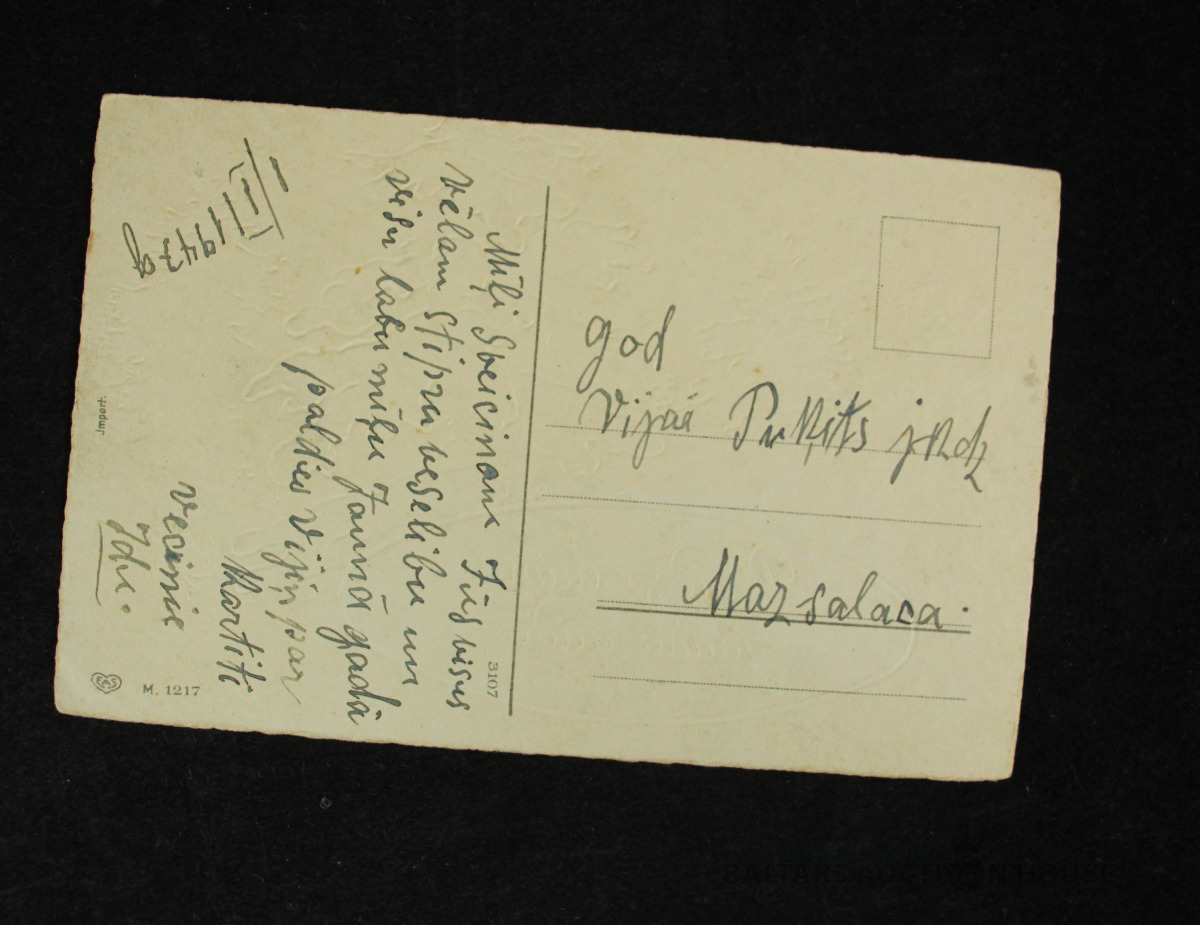 Mīļi Sveicinam Jūs visus
vēlam stipru veselību un
visu labu mīļu Jaunā gadā
paldies Vijiņ par
Kartiti
vecmā
Ida.
1947g
god
Vijai Puķits jkdz
Mazsalaca.
3107
M. 1217
EAS
Import.
BALTARS AUCTION HOUSE